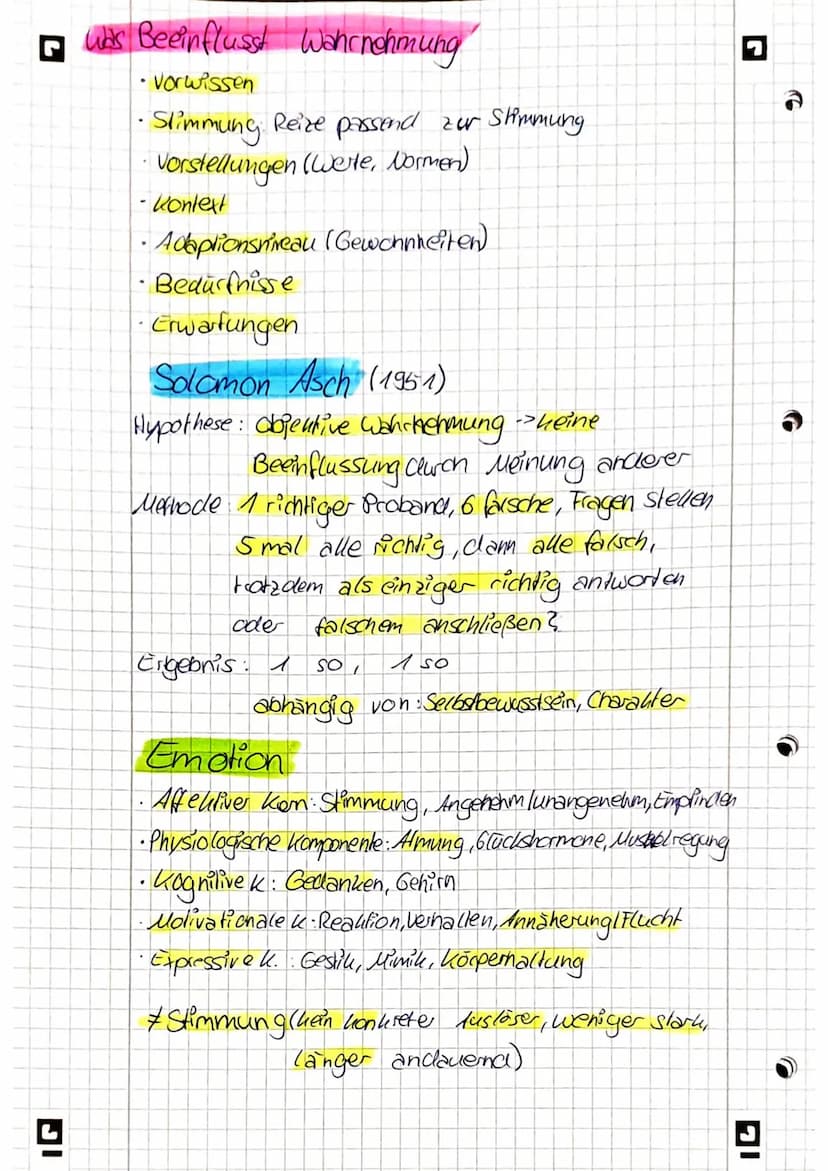 Was Beeinflusst Wahrnehmung
· Vorwissen
· Stimmung: Reize passend zur Stimmung
· Vorstellungen (Werte, Normen)
· Kontext
· Adaptionsniveau (Gewohnheiten)
· Bedürfnisse
· Erwartungen
Solomon Asch (1951)
Hypothese: objektive Wahrnehmung -> keine
Beeinflussung durch Meinung anderer
Methode: 1 richtiger Proband, 6 falsche, Fragen stellen
5 mal alle richtig, dann alle falsch,
trotzdem als einziger richtig antworten
oder falschem anschließen?
Ergebnis: 1 so, 1 so
abhängig von: Selbstbewusstsein, Charakter
Emotion
· Affektiver Kom: Stimmung, Angenehm/unangenehm, Empfinden
· Physiologische Komponente: Atmung, Glückshormone, Muskelregung
· Kognitive K: Gedanken, Gehirn
· Motivationale K: Reaktion, Verhalten, Annäherung/Flucht
· Expressive K.: Gestik, Mimik, Körperhaltung
≠ Stimmung (kein konkreter Auslöser, weniger stark,
länger andauernd)